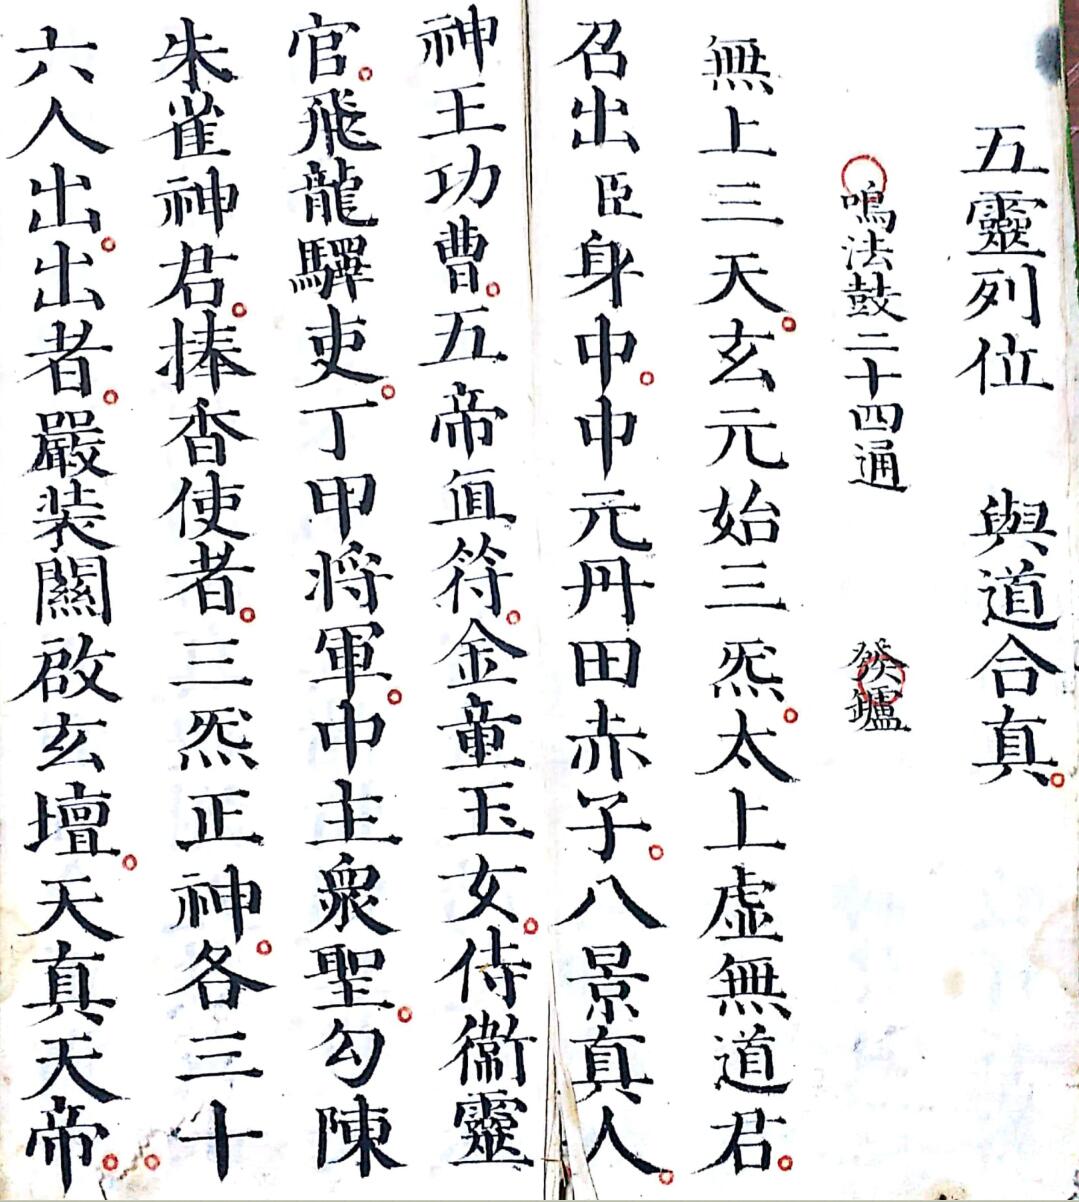 五靈列位　與道合真。
鳴法鼓二十四通　發鑪
無上三天。玄元始三炁。太上虛無道君。
召出臣身中。中元丹田赤子。八景真人。
神王功曹。五帝直符。金童玉女。侍衞靈
官。飛龍驛吏。丁甲将軍。中主衆聖。勾陳
朱雀神君。捧香使者。三炁正神。各三十
六人出。出者。嚴装關啟玄壇。天真天帝。